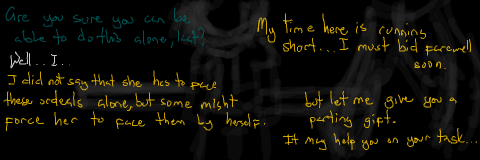 Are you sure you can be
able to do this alone, last?
Well...I..
I did not say that she has to face
these ordeals alone, but some might
force her to face them by herself.
My time here is running
short...I must bid farewell
soon.
but let me give you a
parting gift.
It may help you on your task...